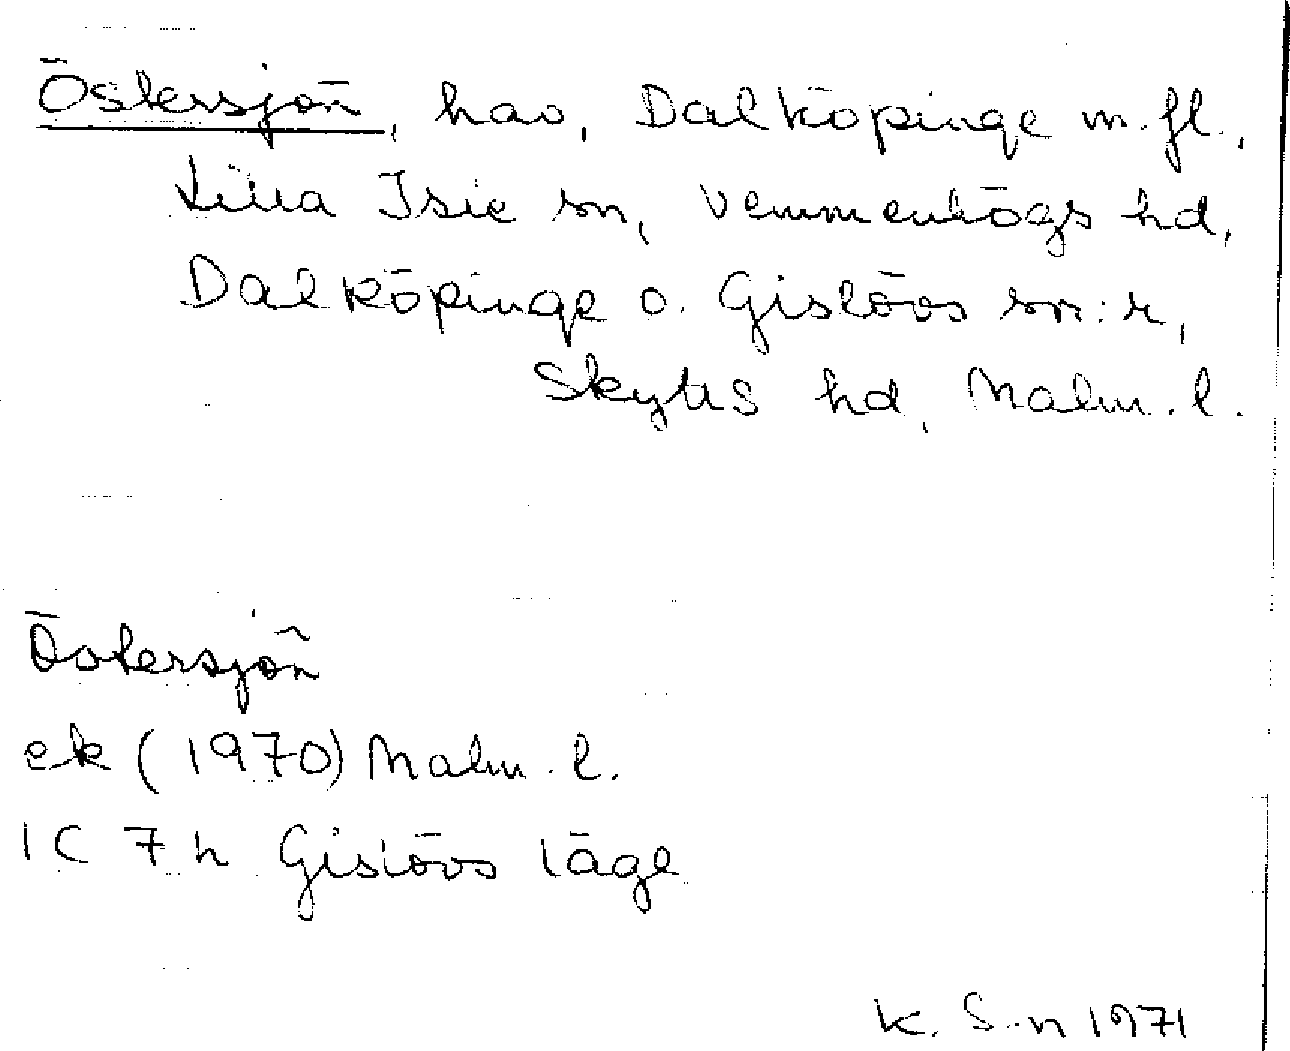 Östersjön, hav, Dalköpinge m.fl.,
Lilla Isie sn, Vemmenhögs hd,
Dalköpinge o. Gislövs sn:r,
Skytts hd, Malm. l.
Östersjön
ek (1970) Malm. l.
1C 7h Gislövs läge
K. S-n 1971